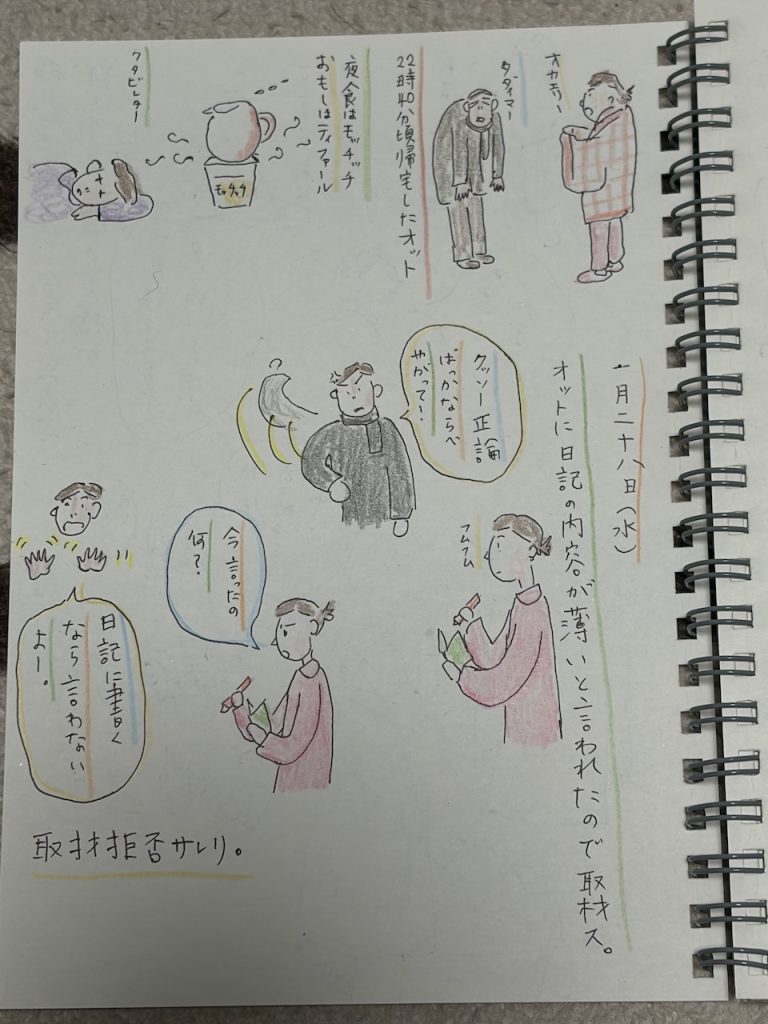 オカエリー
タダイマー
22時40分頃帰宅したオット
夜食はモッチッチ
おもしはティファール
モッチッチ
クタビレター
一月二十八日(水)
オットに日記の内容が薄いと言われたので取材ス。
クッソー正論
ばっかならべ
やがって!
フムフム
今言ったの
何?
日記に書く
なら言わない
よー。
取材拒否サレリ。